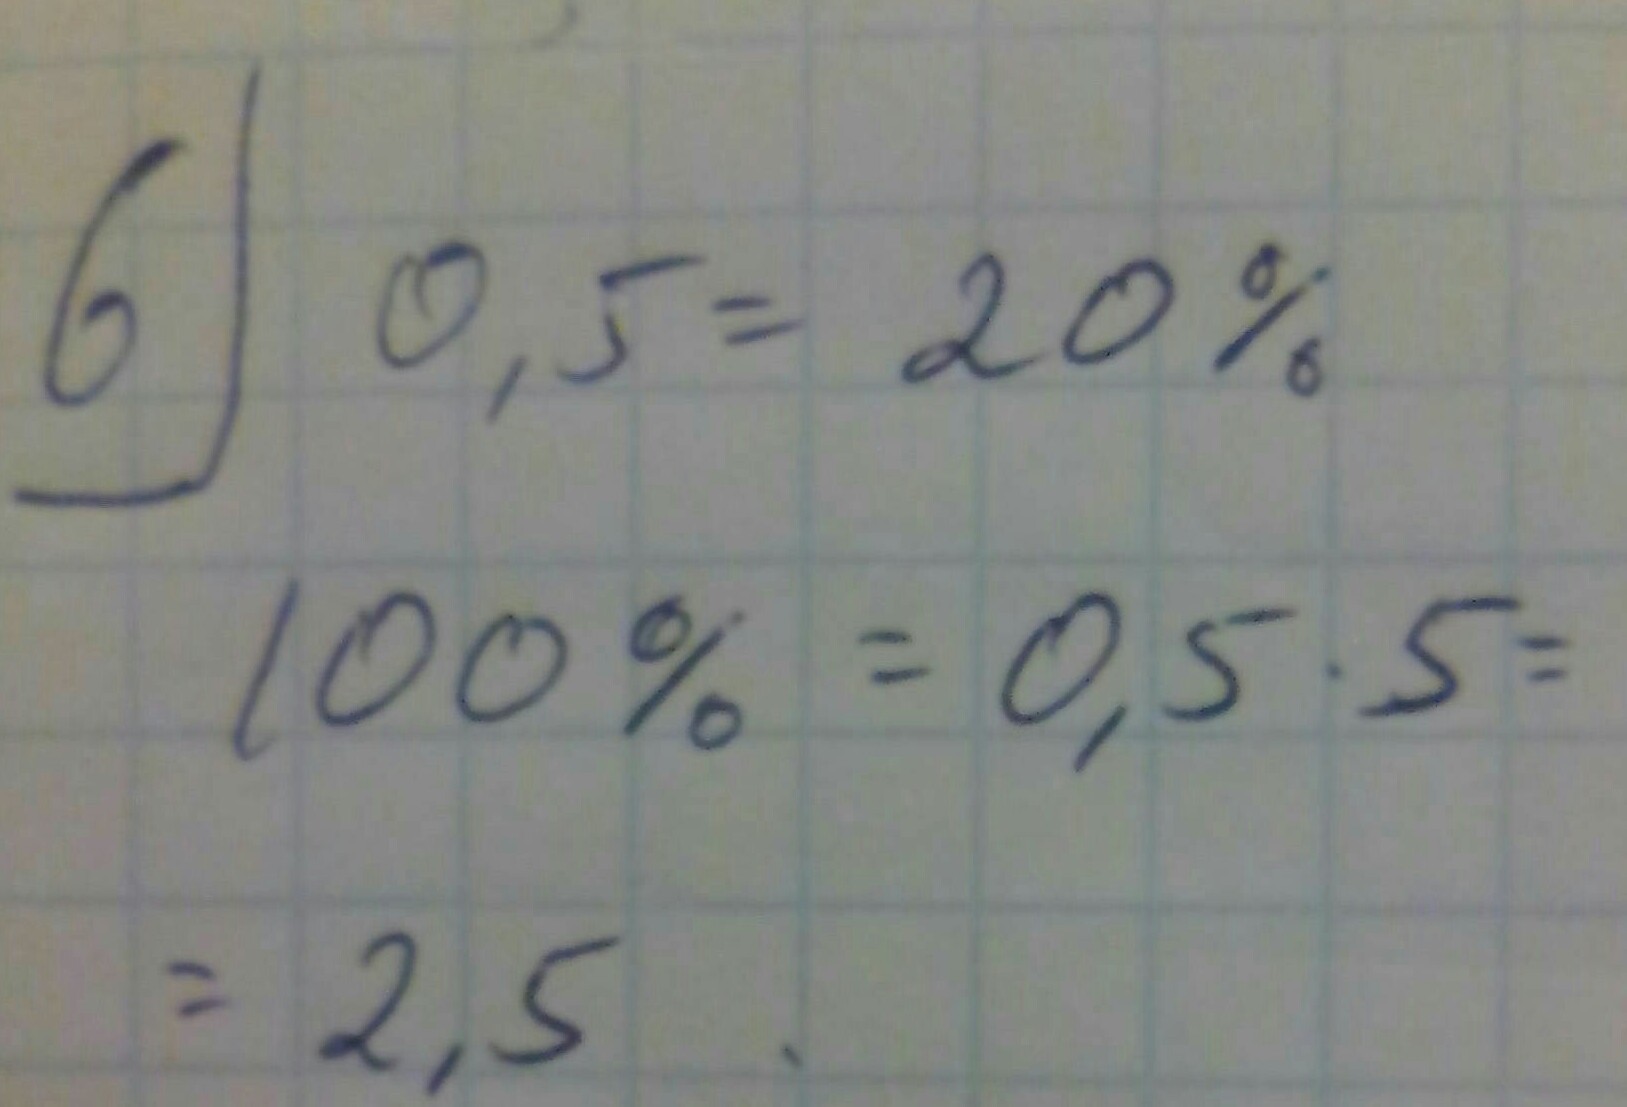 6) 0,5 = 20%
100% = 0,5 · 5 =
= 2,5